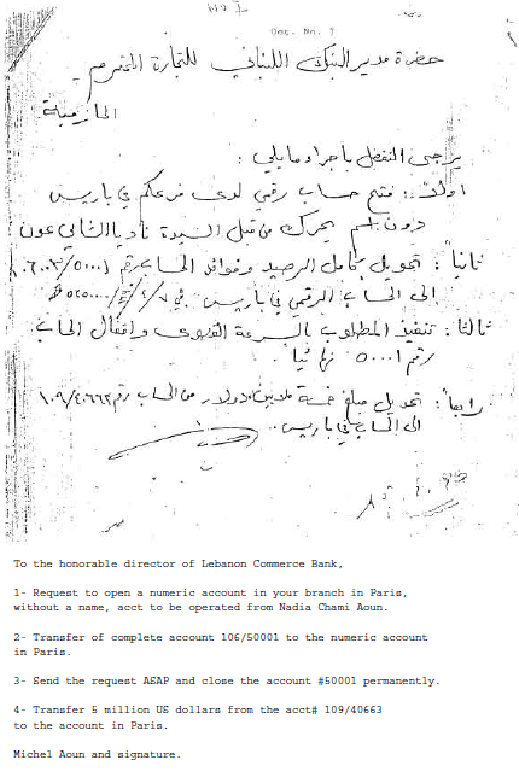 Doc. No. 7
حضرة مدير البنك اللبناني للتجارة المحترم
الحازمية
يرجى التفضل بإجراء ما يلي :
اولاً : فتح حساب رقمي لدى فرعكم في باريس
دون اسم يحرك من قبل السيدة ناديا الشامي عون
ثانياً : تحويل كامل الرصيد وفوائد الحساب رقم
الى الحساب الرقمي في باريس
ثالثاً : تنفيذ المطلوب بالسرعة القصوى واقفال الحساب
رقم ٥٠٠٠١ نهائياً .
رابعاً : تحويل مبلغ خمسة ملايين دولار من الحساب رقم
الى الحساب في باريس .
To the honorable director of Lebanon Commerce Bank,
1- Request to open a numeric account in your branch in Paris,
without a name, acct to be operated from Nadia Chami Aoun.
2- Transfer of complete account 106/50001 to the numeric account
in Paris.
3- Send the request ASAP and close the account #50001 permanently.
4- Transfer 5 million US dollars from the acct# 109/40663
to the account in Paris.
Michel Aoun and signature.